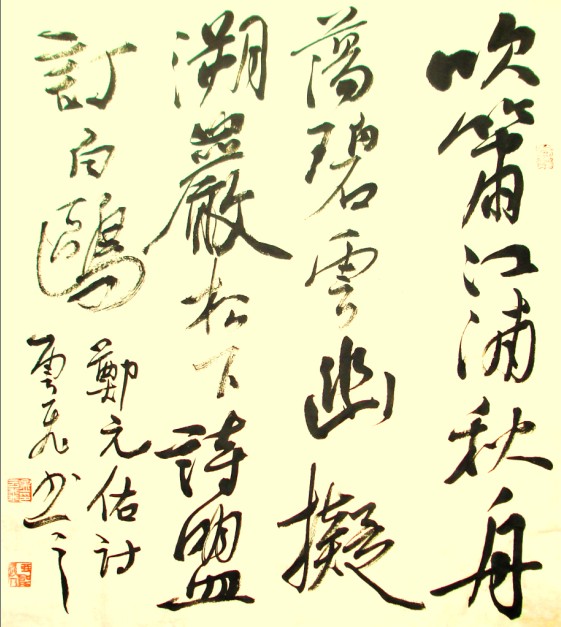 吹簫江浦秋舟
蕩碧雲幽擬
溯巖松下詩盟
訂白鷗
鄭元佑詩
雲飛书之